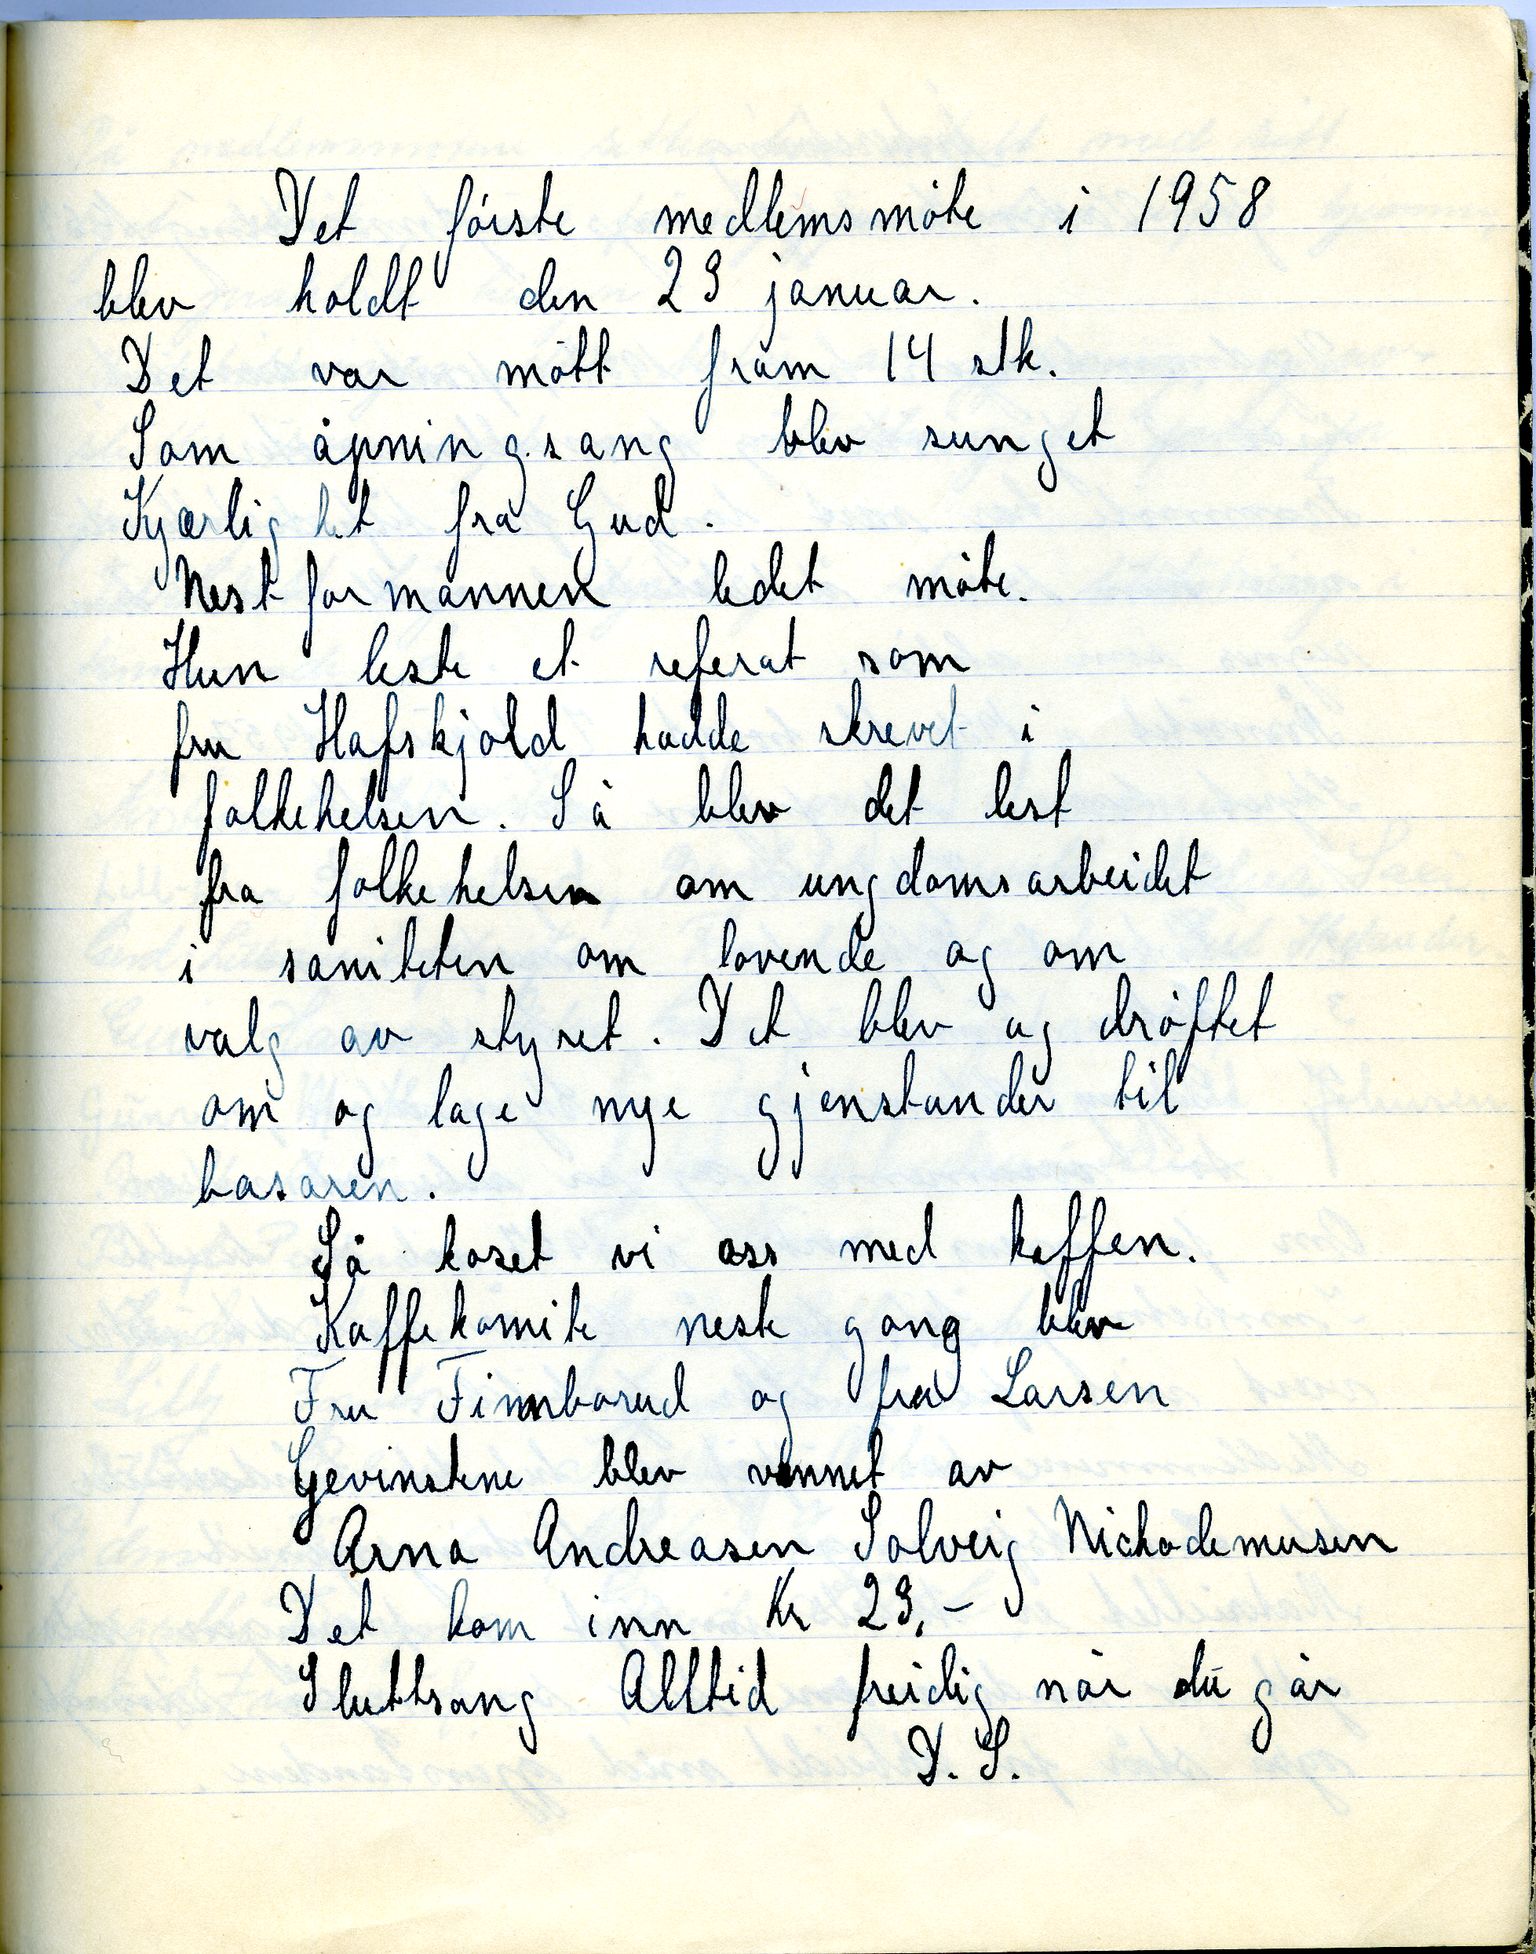 Det første medlemsmøte i 1958
blev holdt den 23 januar.
Det var møtt fram 14 stk.
Som åpningsang blev sunget
Kjærlighet fra Gud.
Nestformannen ledet møte.
Hun leste et referat som
fru Hafskjold hadde skrevet i
folkehelsen. Så blev det lest
fra folkehelsen om ungdomsarbeidet
i saniteten om lovende og om
valg av styret. Det blev og drøftet
om og lage nye gjenstander til
basaren.
Så koset vi oss med kaffen.
Kaffekomite neste gang blev
Fru Finnborud og fru Larsen
Gevinstene blev vunnet av
Arna Andreasen Solveig Nichodemusen
Det kom inn Kr 23,-
Sluttsang Alltid freidig når du går
D. S.